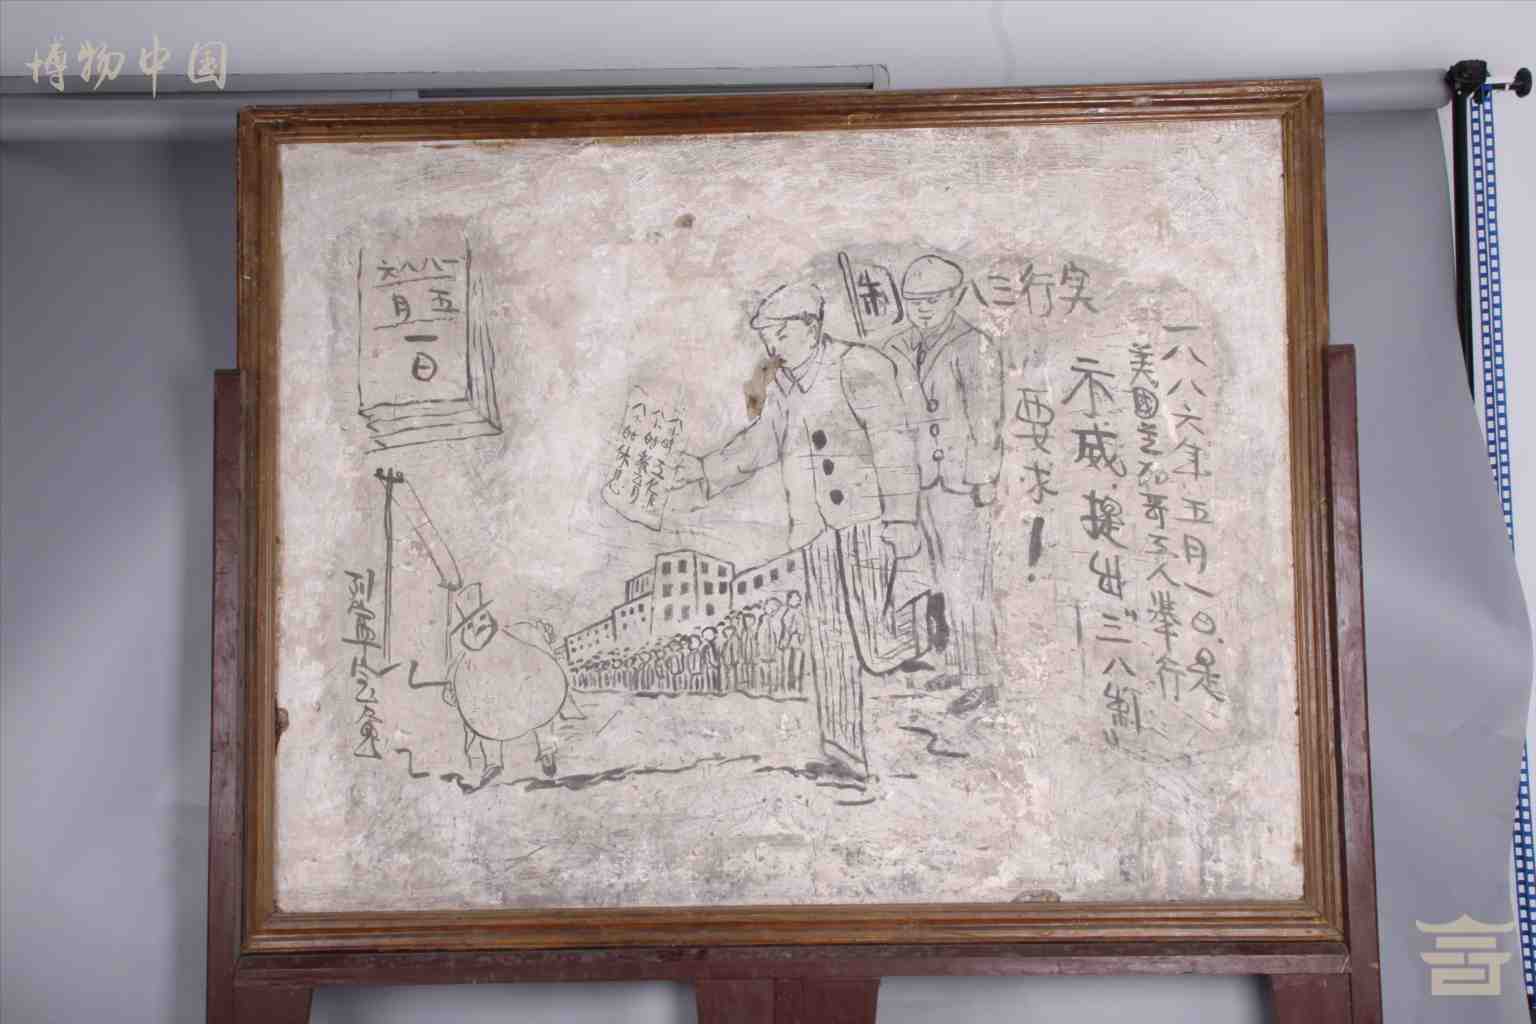 博物中国
实行三八制
一八八六年五月一日.是
美國芝加哥工人举行
示威.提出"三八制"
要求！
一八八六
五月
一日
八小时工作
八小时教育
八小时休息